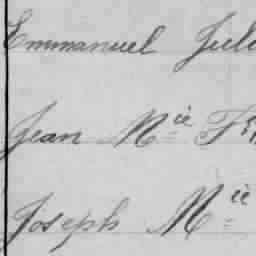 Emmanuel Jul
Jean Mie F
Joseph Mie